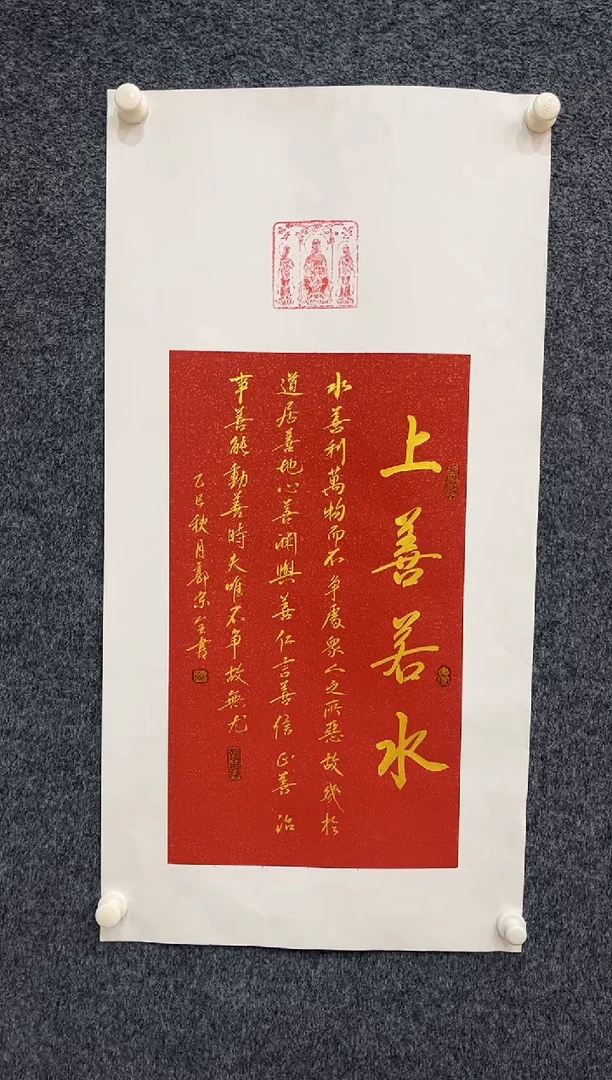 上善若水
水善利萬物而不争處衆人之所惡故幾於
道居善地心善渊與善仁言善信正善治
事善能動善時夫唯不争故無尤
乙巳秋月郭宗全書